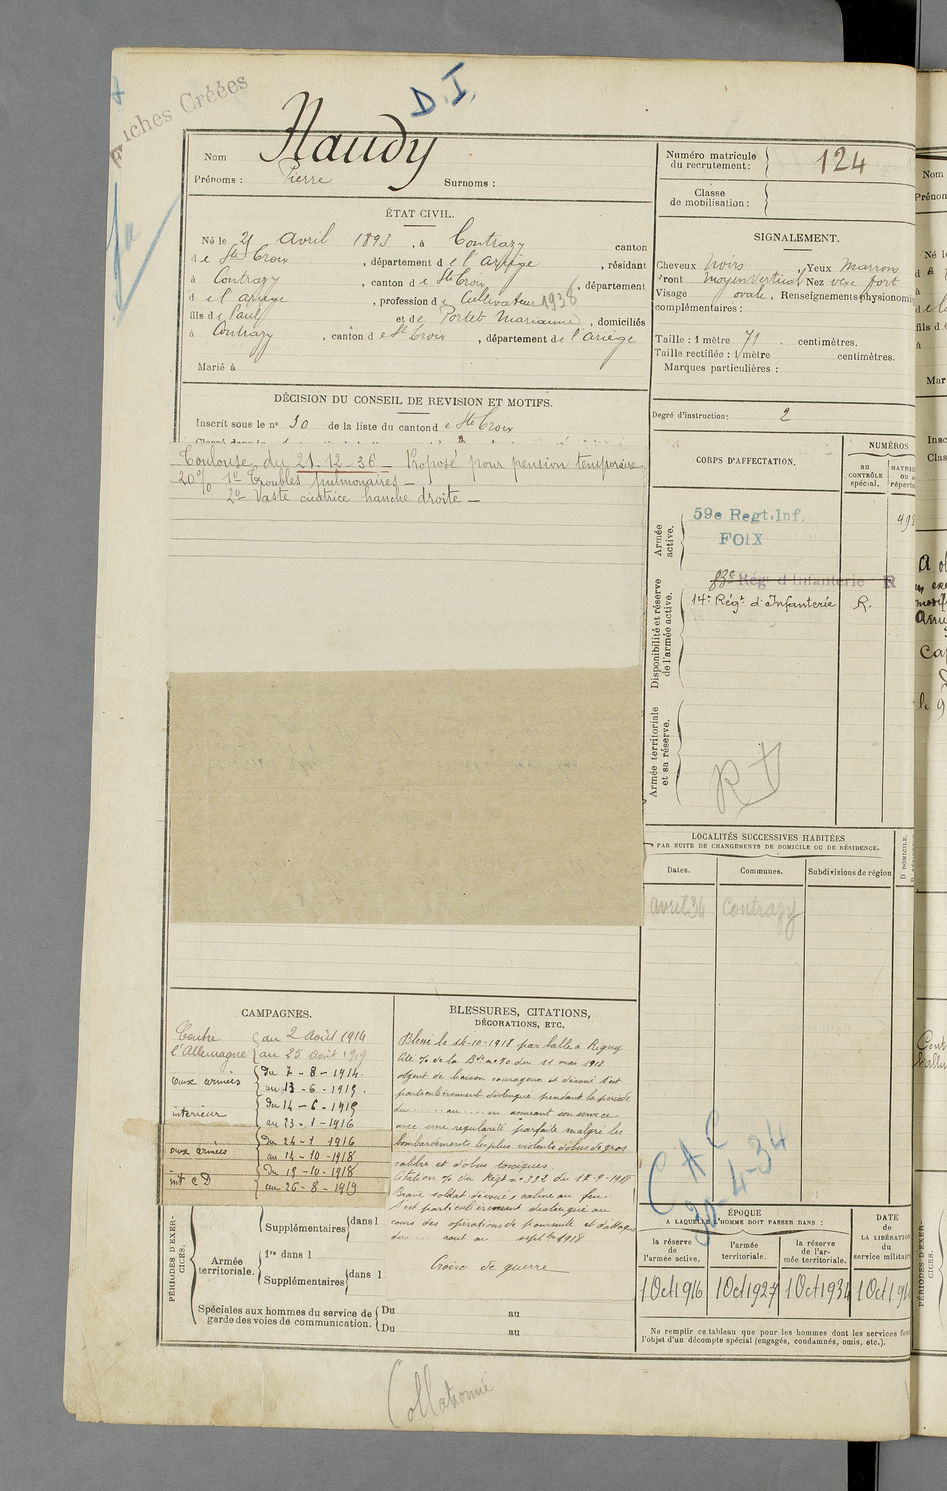 Fiches Créées
D.I.
Nom Naudy
Prénoms : Pierre Surnoms :
Numéro matricule du recrutement : 124
Classe de mobilisation :
ÉTAT CIVIL.
Né le 21 Avril 1893, à Contrazy canton
de Ste Croix, département de l'ariège, résidant
à Contrazy, canton de Ste Croix, département
d e l'ariège, profession de Cultivateur 1936
fils de Paul et de Portet Marianne, domiciliés
à Contrazy, canton de Ste Croix, département de l'ariège
Marié à
SIGNALEMENT.
Cheveux Noirs, Yeux Marrons
Front moyen Vertical Nez vexe fort
Visage ovale, Renseignements physionomi
complémentaires :
Taille : 1 mètre 71 centimètres.
Taille rectifiée : 1 mètre centimètres.
Marques particulières :
DÉCISION DU CONSEIL DE REVISION ET MOTIFS.
Inscrit sous le n° 30 de la liste du canton de Ste Croix
Degré d'instruction: 2
Toulouse du 21.12.36 - Proposé pour pension temporaire
20% 1° Troubles pulmonaires -
2° Vaste cicatrice hanche droite -
CORPS D'AFFECTATION.
NUMÉROS
au CONTRÔLE spécial.
Armée active.
59e Regt.Inf.
FOIX
Disponibilité et réserve de l'armée active.
83e Régt d'Infanterie R
14e Régt d'Infanterie R.
Armée territoriale et sa réserve.
LOCALITÉS SUCCESSIVES HABITÉES
PAR SUITE DE CHANGEMENTS DE DOMICILE OU DE RÉSIDENCE.
Dates. Communes. Subdivisions de région
avril 34 Contrazy
CAMPAGNES.
Contre l'Allemagne
au 2 Août 1914
au 25 Août 1919
aux armées
du 7-8-1914.
au 13-6-1915.
intérieur
du 14-6-1915
au 23-1-1916
aux armées
du 24-1-1916
au 14-10-1918
int C D
du 15-10-1918
au 26-8-1919
BLESSURES, CITATIONS,
DÉCORATIONS, ETC.
Blessé le 14-10-1918 par balle a Rigny
Agent de liaison courageux et dévoué s'est
particulièrement distingué pendant la période
du ..... au ..... en assurant son service
avec une régularité parfaite malgré les
bombardements les plus violents d'obus de gros
calibre et d'obus toxiques.
Brave soldat dévoué, calme au feu
S'est particulièrement distingué au
cours des opérations de poursuite et d'attaque
du .. aout au .. septbre 1918
Croix de guerre
C A C
30-4-34
PÉRIODES D'EXERCICES.
Supplémentaires dans l
Armée territoriale. 1re dans l
Supplémentaires dans l
Spéciales aux hommes du service de garde des voies de communication. Du au
Du au
ÉPOQUE
A LAQUELLE L'HOMME DOIT PASSER DANS :
la réserve de l'armée active.
l'armée territoriale.
la réserve de l'armée territoriale.
DATE de LA LIBÉRATION du service militaire
1 Oct 1916 1 Oct 1927 1 Oct 1934 1 Oct 19
Ne remplir ce tableau que pour les hommes dont les services font
l'objet d'un décompte spécial (engagés, condamnés, omis, etc.).
Collationné